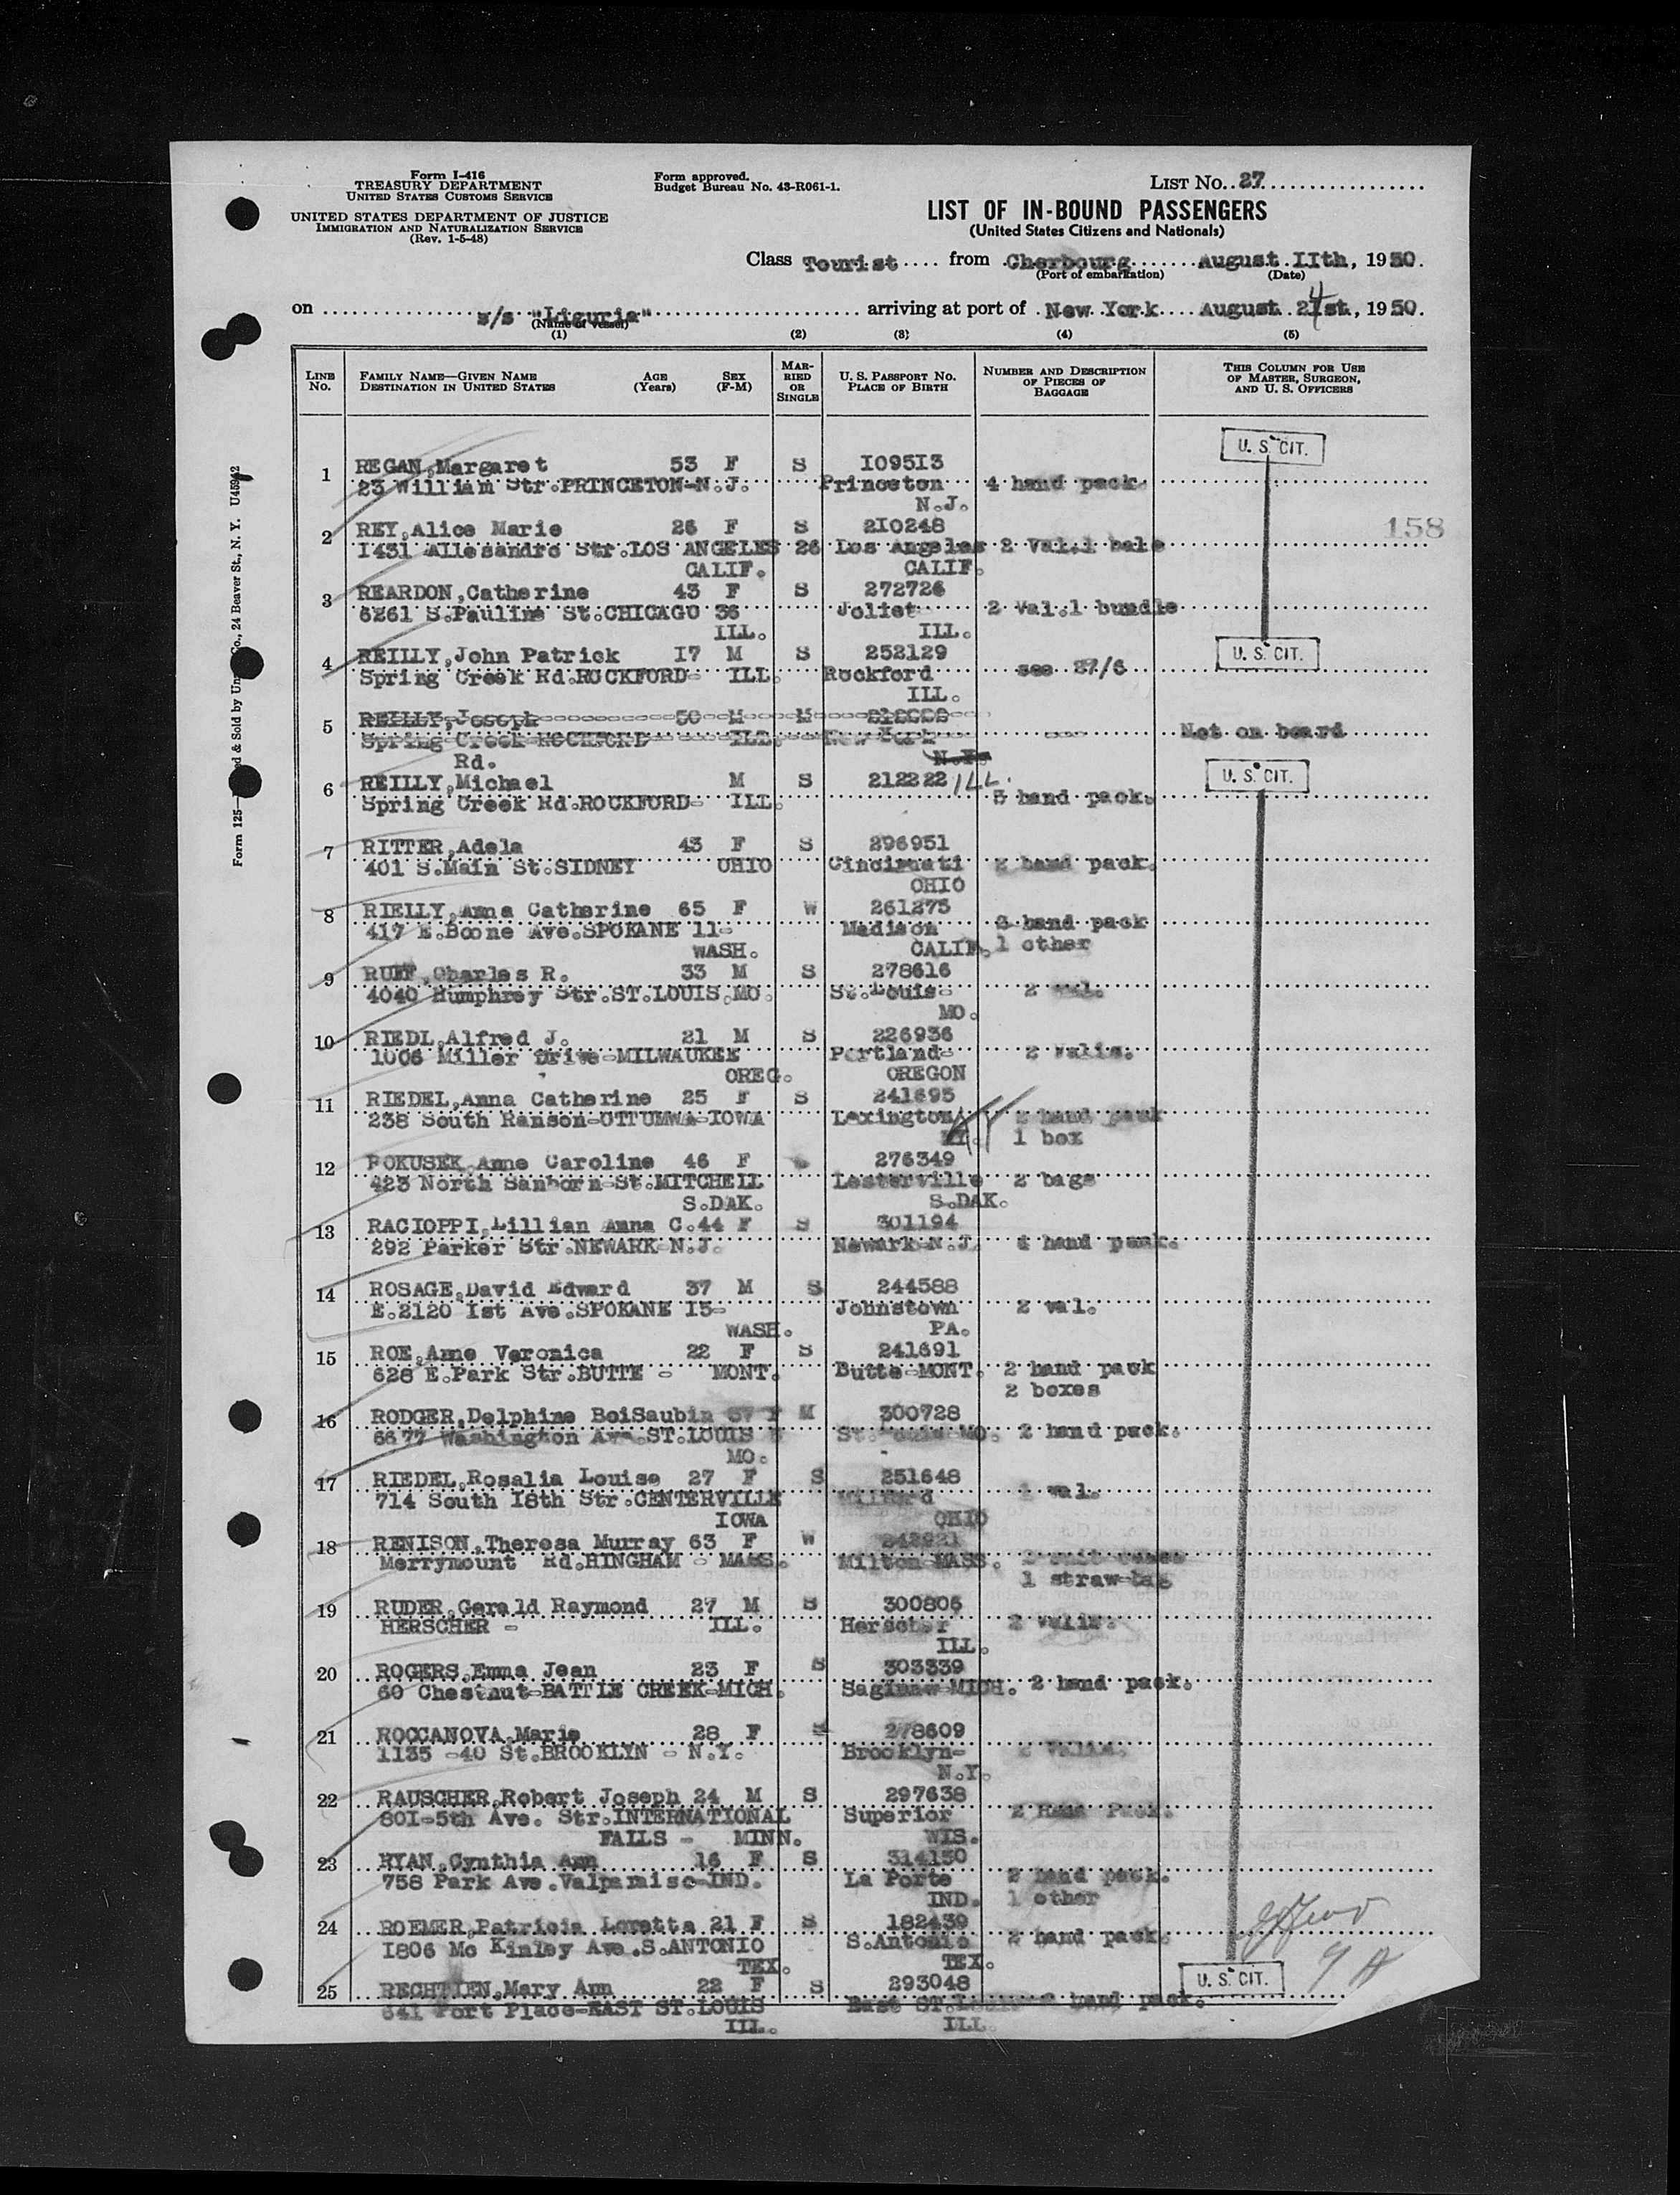 Form I-416
TREASURY DEPARTMENT
UNITED STATES CUSTOMS SERVICE
UNITED STATES DEPARTMENT OF JUSTICE
IMMIGRATION AND NATURALIZATION SERVICE
(Rev. 1-5-48)
Form approved.
Budget Bureau No. 43-R061-1.
LIST No. 27
LIST OF IN-BOUND PASSENGERS
(United States Citizens and Nationals)
Class Tourist from Cherbourg August IIth, 1950.
(Port of embarkation) (Date)
on s/s "Liguria" arriving at port of New York August 24st, 1950.
(Name of vessel)
(1) (2) (3) (4) (5)
LINE No. FAMILY NAME—GIVEN NAME DESTINATION IN UNITED STATES AGE (Years) SEX (F-M) MARRIED OR SINGLE U. S. PASSPORT No. PLACE OF BIRTH NUMBER AND DESCRIPTION OF PIECES OF BAGGAGE THIS COLUMN FOR USE OF MASTER, SURGEON, AND U. S. OFFICERS
U. S. CIT.
1 REGAN,Margaret 53 F S I095I3
23 William Str.PRINCETON-N.J. Princeton 4 hand pack.
N.J.
158
2 REY,Alice Marie 26 F S 2I0248
I431 Allesandro Str.LOS ANGELES 26 Los Angeles 2 Val.1 bale
CALIF. CALIF.
3 REARDON,Catherine 43 F S 272726
6261 S.Paulina St.CHICAGO 36 Joliet 2 Val.1 bundle
ILL. ILL.
4 REILLY,John Patrick I7 M S 252129 U. S. CIT.
Spring Creek Rd.ROCKFORD- ILL. Rockford see 27/6
ILL.
5 REILLY,Joseph 50 M M
Spring Creek ROCKFORD ILL. New York Not on board
Rd. N.Y.
6 REILLY,Michael M S 212222 ILL. U. S. CIT.
Spring Creek Rd.ROCKFORD- ILL. hand pack.
7 RITTER,Adela 43 F S 296951
401 S.Main St.SIDNEY OHIO Cincinnati 2 hand pack.
OHIO
8 RIELLY,Anna Catherine 65 F W 261275
417 E.Boone Ave.SPOKANE 11- Madison hand pack
WASH. CALIF. 1 other
9 RUEF,Charles R. 33 M S 278616
4040 Humphrey Str.ST.LOUIS.MO. St.Louis- 2 val.
MO.
10 RIEDL,Alfred J. 21 M S 226936
1006 Miller Drive-MILWAUKEE Portland- 2 valis.
OREG. OREGON
11 RIEDEL,Anna Catherine 25 F S 241695
238 South Ranson-OTTUMWA-IOWA Lexington 2 hand pack
1 box
12 POKUSEK,Anne Caroline 46 F 276349
423 North Sanborn-St.MITCHELL Lesterville 2 bags
S.DAK. S.DAK.
13 RACIOPPI,Lillian Anna C.44 F S 301194
292 Parker Str.NEWARK-N.J. Newark-N.J. 4 hand pack.
14 ROSAGE,David Edward 37 M S 244588
E.2120 Ist Ave.SPOKANE I5- Johnstown 2 val.
WASH. PA.
15 ROE,Anne Veronica 22 F S 241691
628 E.Park Str.BUTTE - MONT. Butte-MONT. 2 hand pack
2 boxes
16 RODGER,Delphine BoiSaubin 57 F M 300728
Washington Ave.ST.LOUIS MO. 2 hand pack.
MO.
17 RIEDEL,Rosalia Louise 27 F S 251648
714 South I8th Str.CENTERVILLE Milford 1 val.
IOWA OHIO
18 RENISON,Theresa Murray 63 F W 242921
Merrymount Rd.HINGHAM - MASS. Milton-MASS.
1 straw-bag
19 RUDER,Gerald Raymond 27 M S 300806
HERSCHER - ILL. Herscher 2 valis.
ILL.
20 ROGERS,Emma Jean 23 F S 303339
60 Chestnut-BATTLE CREEK-MICH. Saginaw-MICH. 2 hand pack.
21 ROCCANOVA,Marie 28 F S 278609
1135 -40 St.BROOKLYN - N.Y. Brooklyn- 2 Valis.
N.Y.
22 RAUSCHER,Robert Joseph 24 M S 297638
80I-5th Ave. Str.INTERNATIONAL Superior 2 Hand Pack.
FALLS - MINN. WIS.
23 RYAN,Cynthia Ann 16 F S 314150
758 Park Ave.Valparaiso-IND. La Porte 2 hand pack.
IND. 1 other
24 ROEMER,Patricia Loretta 21 F S 182439
I806 Mc Kinley Ave.S.ANTONIO S.Antonio 2 hand pack.
TEX. TEX.
25 RECHTIEN,Mary Ann 22 F S 293048 U. S. CIT.
641 Port Place-EAST ST.LOUIS East ST.Louis 2 hand pack.
ILL. ILL.